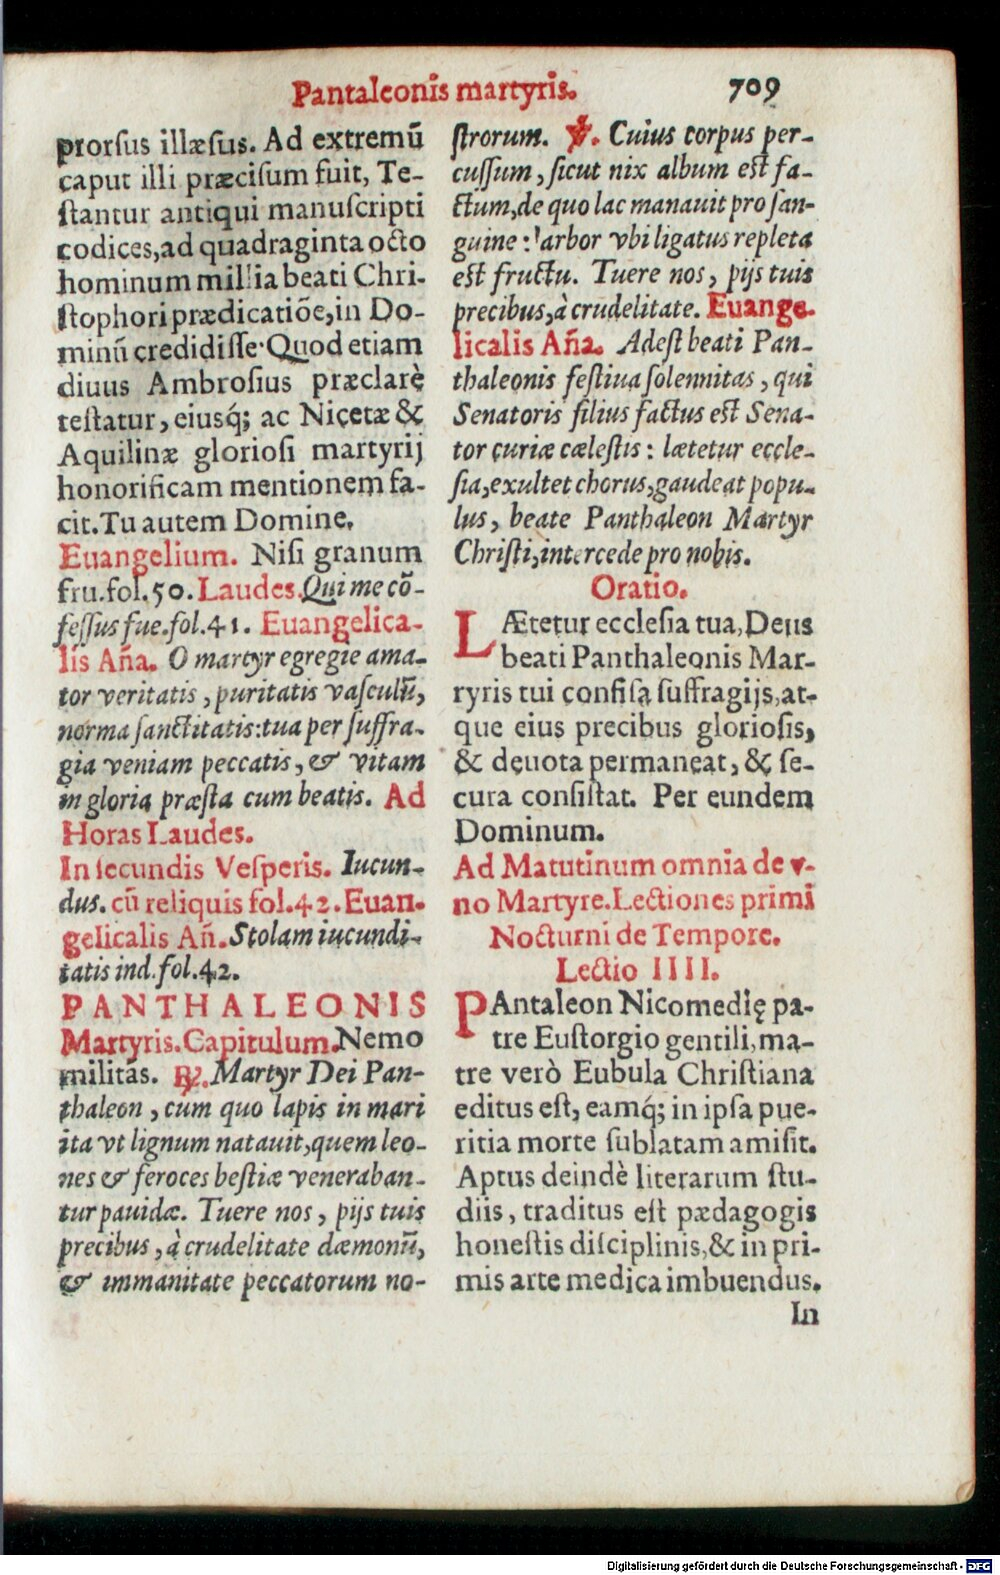 Pantaleonis martyris. 709
prorsus illæsus. Ad extremū
caput illi præcisum fuit, Te-
stantur antiqui manuscripti
codices, ad quadraginta octo
hominum millia beati Chri-
stophori prædicatiōe, in Do-
minū credidisse. Quod etiam
diuus Ambrosius præclarę
testatur, eiusq́; ac Nicetæ &
Aquilinæ gloriosi martyrij
honorificam mentionem fa-
cit. Tu autem Domine.
Euangelium. Nisi granum
fru. fol. 50. Laudes. Qui me cō-
fessus fue. fol. 41. Euangelica-
lis Aña. O martyr egregie ama-
tor veritatis, puritatis vasculū,
norma sanctitatis: tua per suffra-
gia veniam peccatis, & vitam
in gloria præsta cum beatis. Ad
Horas Laudes.
In secundis Vesperis. Iucun-
dus. cū reliquis fol. 42. Euan-
gelicalis Añ. Stolam iucundi-
tatis ind. fol. 42.
PANTHALEONIS
Martyris. Capitulum. Nemo
militās. ℞. Martyr Dei Pan-
thaleon, cum quo lapis in mari
ita vt lignum natauit, quem leo-
nes & feroces bestiæ veneraban-
tur pauidæ. Tuere nos, pijs tuis
precibus, à crudelitate dæmonū,
& immanitate peccatorum no-
strorum. ℣. Cuius corpus per-
cussum, sicut nix album est fa-
ctum, de quo lac manauit pro san-
guine: arbor vbi ligatus repleta
est fructu. Tuere nos, pijs tuis
precibus, à crudelitate. Euange-
licalis Aña. Adest beati Pan-
thaleonis festiua solennitas, qui
Senatoris filius factus est Sena-
tor curiæ cælestis: lætetur eccle-
sia, exultet chorus, gaudeat popu-
lus, beate Panthaleon Martyr
Christi, intercede pro nobis.
Oratio.
LÆtetur ecclesia tua, Deus
beati Panthaleonis Mar-
tyris tui confisa suffragijs, at-
que eius precibus gloriosis,
& deuota permaneat, & se-
cura consistat. Per eundem
Dominum.
Ad Matutinum omnia de v-
no Martyre. Lectiones primi
Nocturni de Tempore.
Lectio IIII.
PAntaleon Nicomedię pa-
tre Eustorgio gentili, ma-
tre verò Eubula Christiana
editus est, eamq́; in ipsa pue-
ritia morte sublatam amisit.
Aptus deindè literarum stu-
diis, traditus est pædagogis
honestis disciplinis, & in pri-
mis arte medica imbuendus.
In
Digitalisierung gefördert durch die Deutsche Forschungsgemeinschaft - DFG